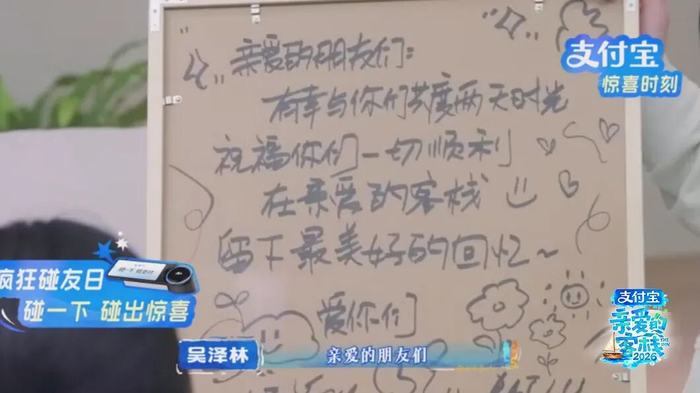 亲爱的朋友们：
有幸与你们共度两天时光
祝福你们一切顺利
在亲爱的客栈
留下最美好的回忆～
爱你们
支付宝
惊喜时刻
疯狂碰友日
碰一下 碰出惊喜
吴泽林
亲爱的朋友们
支付宝
亲爱的客栈
2026